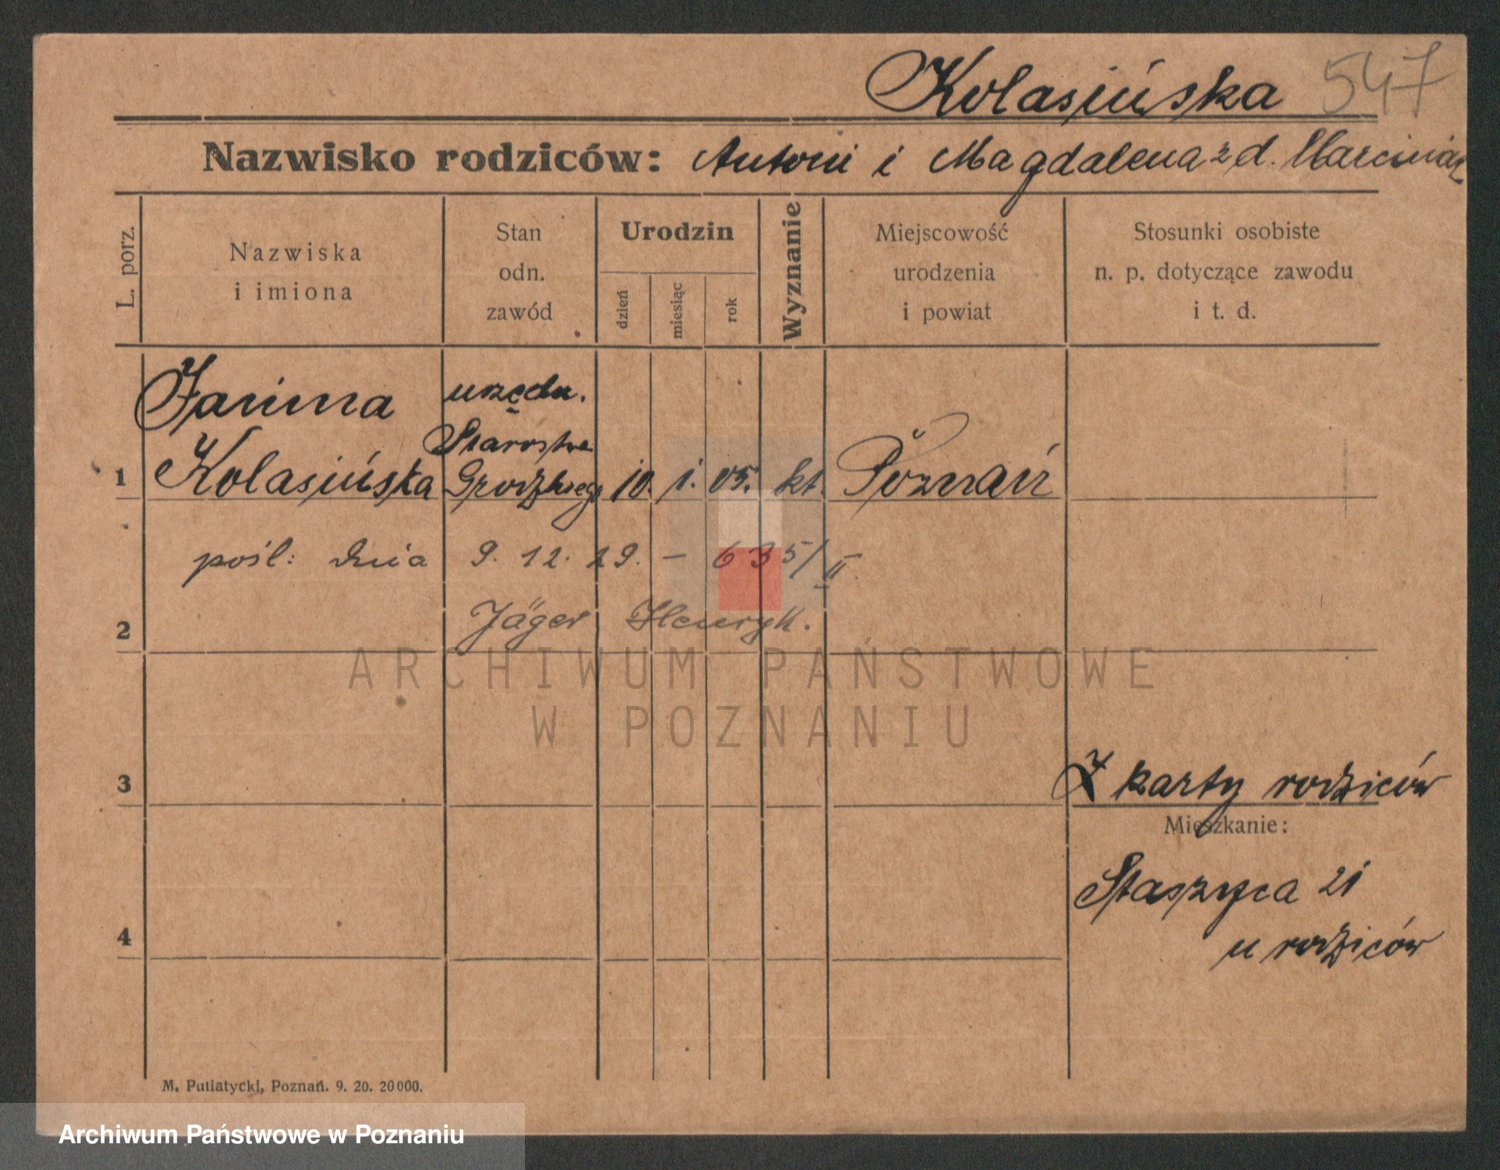 Kolasińska 547
Nazwisko rodziców: Antoni i Magdalena z d. Marciniak
L. porz.
Nazwiska
i imiona
Stan
odn.
zawód
Urodzin
dzień
miesiąc
rok
Wyznanie
Miejscowość
urodzenia
i powiat
Stosunki osobiste
n. p. dotyczące zawodu
i t. d.
Janina urzędn.
Starostwa
1 Kolasińska Grodzkiego 10. 1. 05. kt. Poznań
pośl: dnia 9. 12. 29. — 635/II
2 Jäger Henryk.
ARCHIWUM PAŃSTWOWE
W POZNANIU
3 Z karty rodziców
Mieszkanie:
Staszyca 21
4 u rodziców
M. Putiatycki, Poznań. 9. 20. 20000.
Archiwum Państwowe w Poznaniu